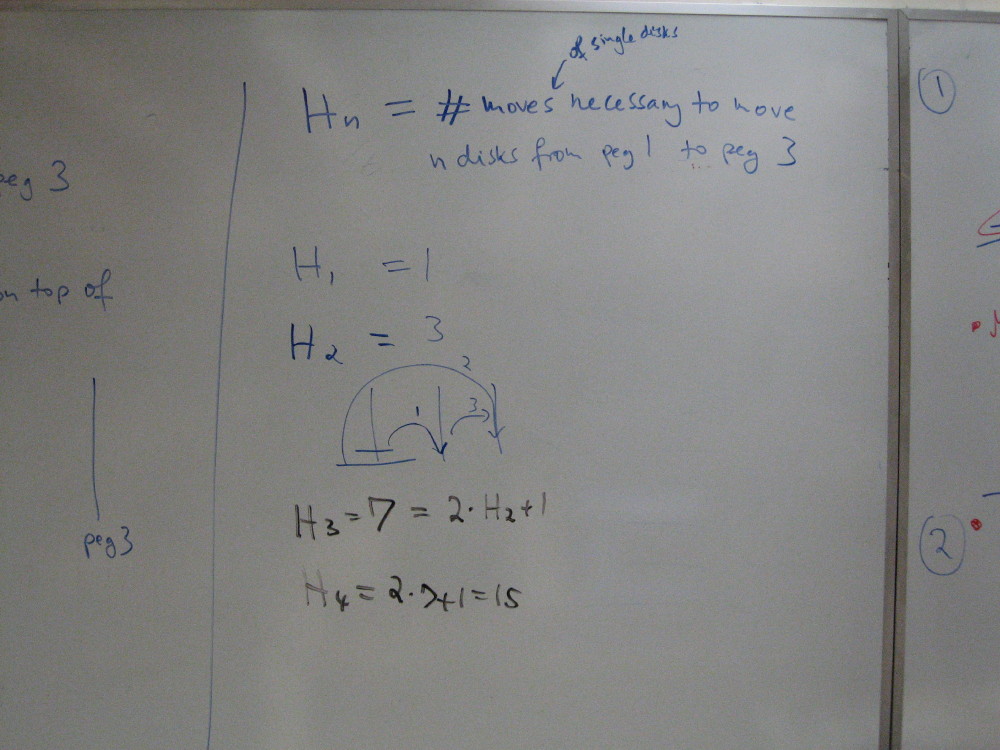 peg 3
on top of
peg 3
of single disks
Hn = # moves necessary to move
n disks from peg 1 to peg 3
H1 = 1
H2 = 3
2
1
3
H3 = 7 = 2·H2+1
H4 = 2·7+1=15
1
2